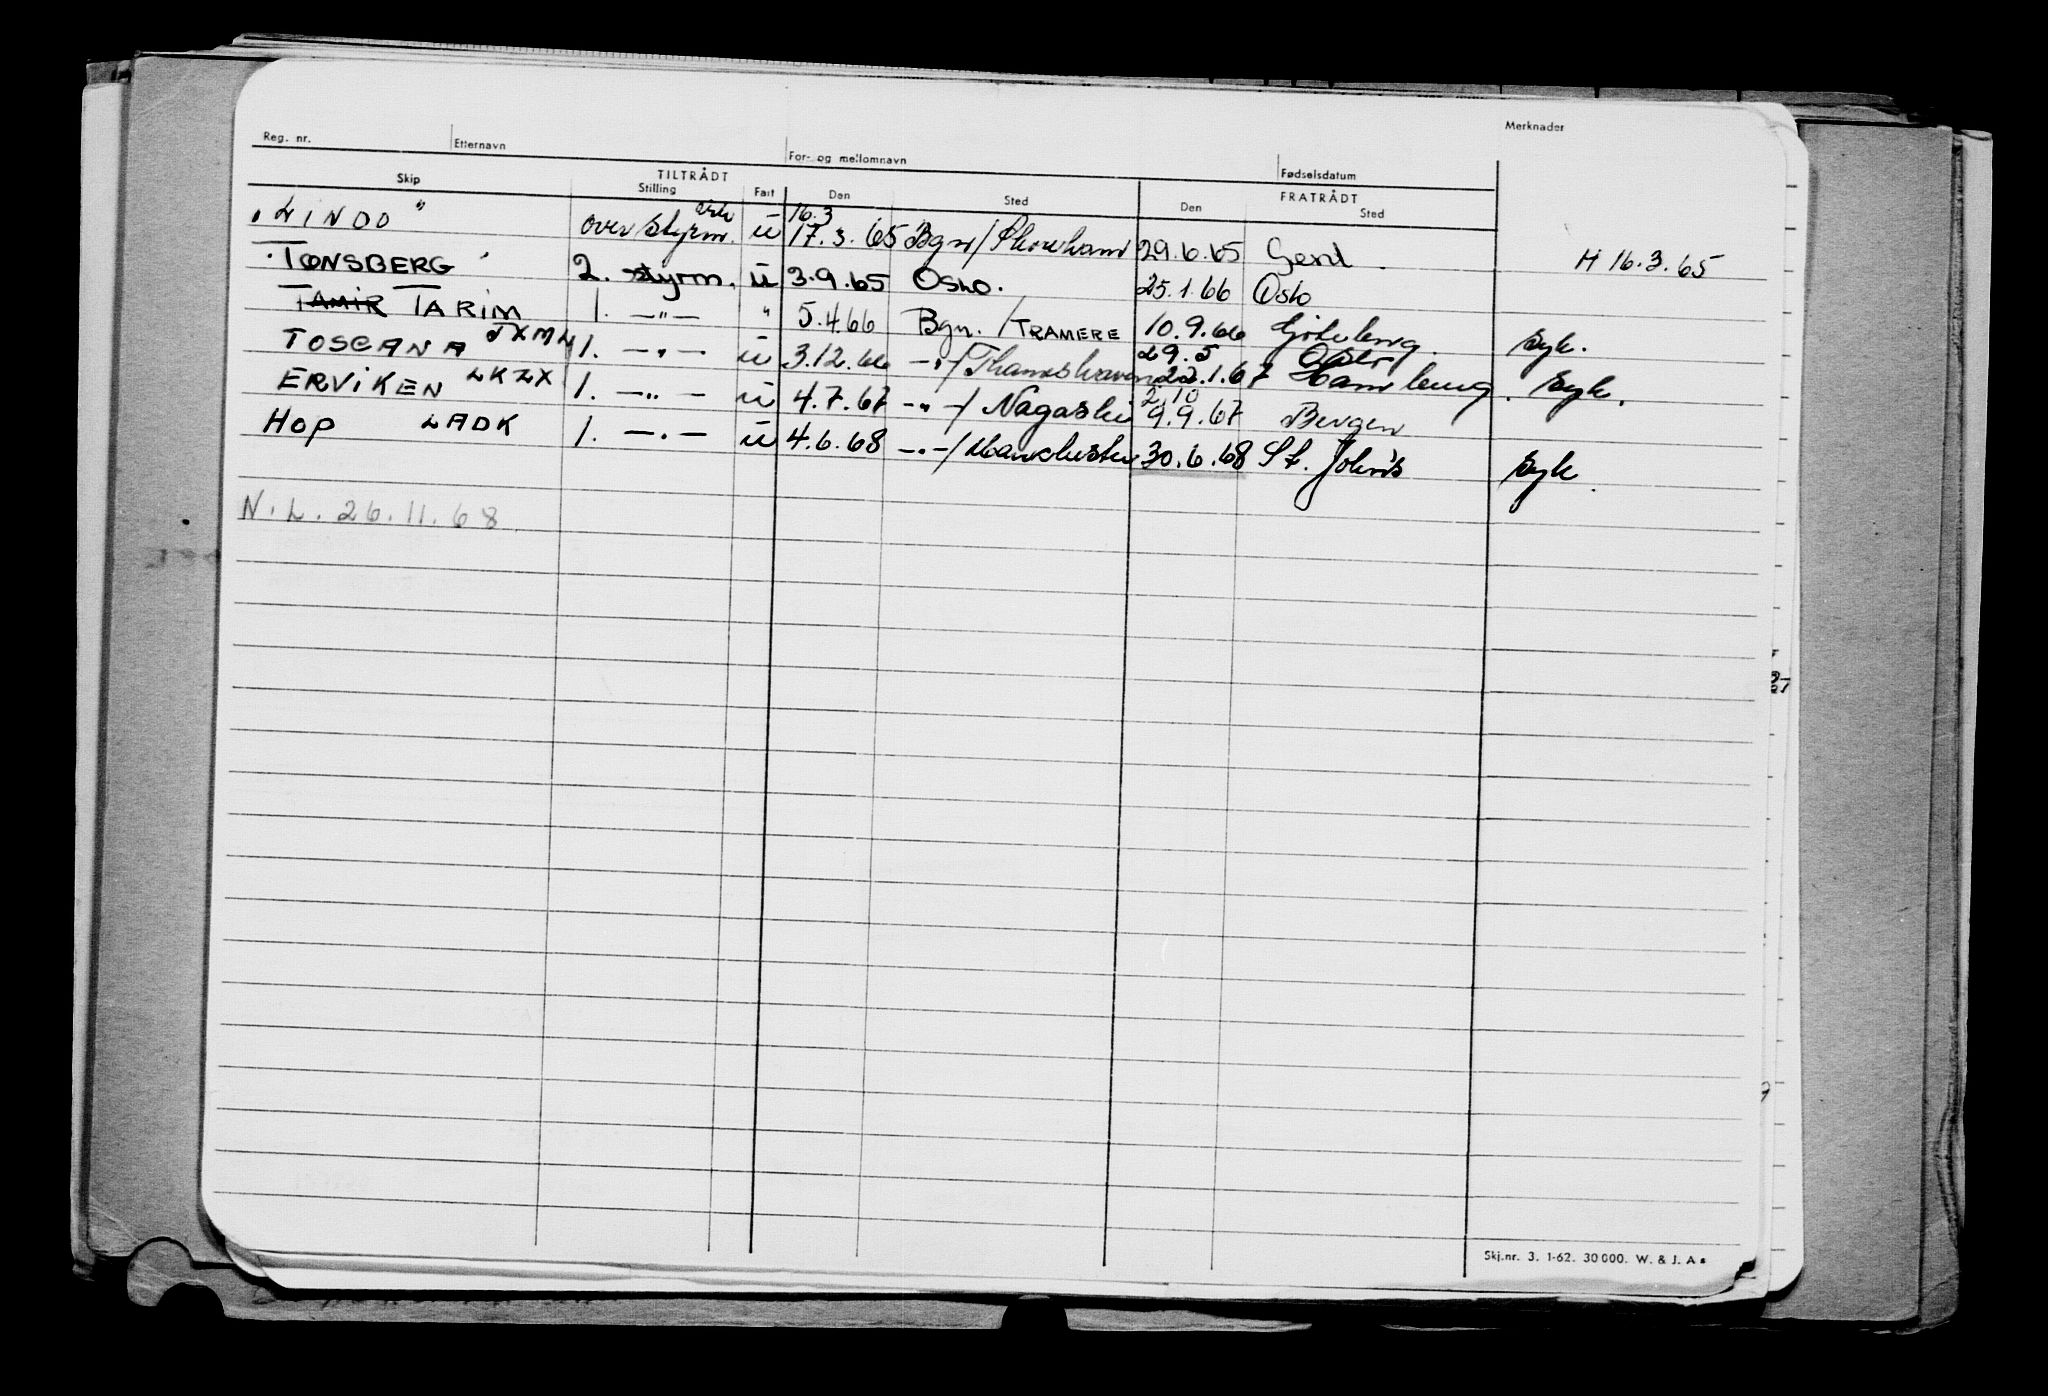 Reg. nr. Etternavn For- og mellomnavn Fødselsdatum Merknader
TILTRÅDT FRATRÅDT
Skip Stilling Fart Den Sted Den Sted
"LINDO" over styrm. ü 16.3 17.3.65 Bgn/Shoreham 29.6.65 Gent H 16.3.65
"TØNSBERG" 2. styrm. ü 3.9.65 Oslo. 25.1.66 Oslo
TAMIR TARIM 1. —"— " 5.4.66 Bgn. /TRAMERE 10.9.66 Göteborg. syk.
TOSCANA JXMN 1. —"— ü 3.12.66 —"—/Thamshavn 29.5 22.1.67 Oslo Hamburg. syk.
ERVIKEN LKZX 1. —"— ü 4.7.67 —"—/Nagaski 2.10 9.9.67 Bergen
HOP LADK 1. —"— ü 4.6.68 —"—/Manchester 30.6.68 St. John's syk.
N.L. 26.11.68
Skj.nr. 3. 1-62. 30000. W. & J. As